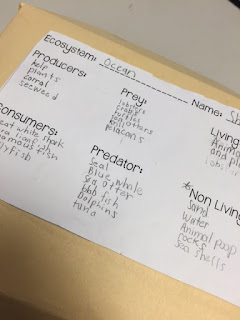 Ecosystem: Ocean
Name:
Producers:
kelp
plants
corral
seeweed
Prey:
lobsters
crables
turtles
pelacans
Living
Consumers:
eat white shark
fish
llyfish
Predator:
Seal
Blue whale
Sea otter
fish
Dolphins
tuna
Non Living
Sand
Water
Animal poop
rocks
Sea shells